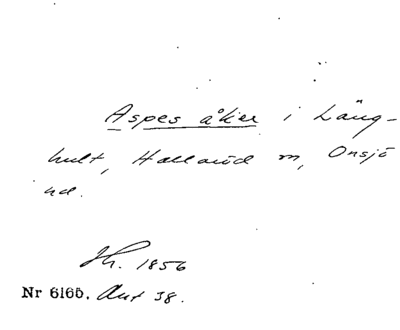 Aspes åker i Läng-
hult, Hallaröd sn, Onsjö
hd.
Jh. 1856
Nr 6165. Ant 38.